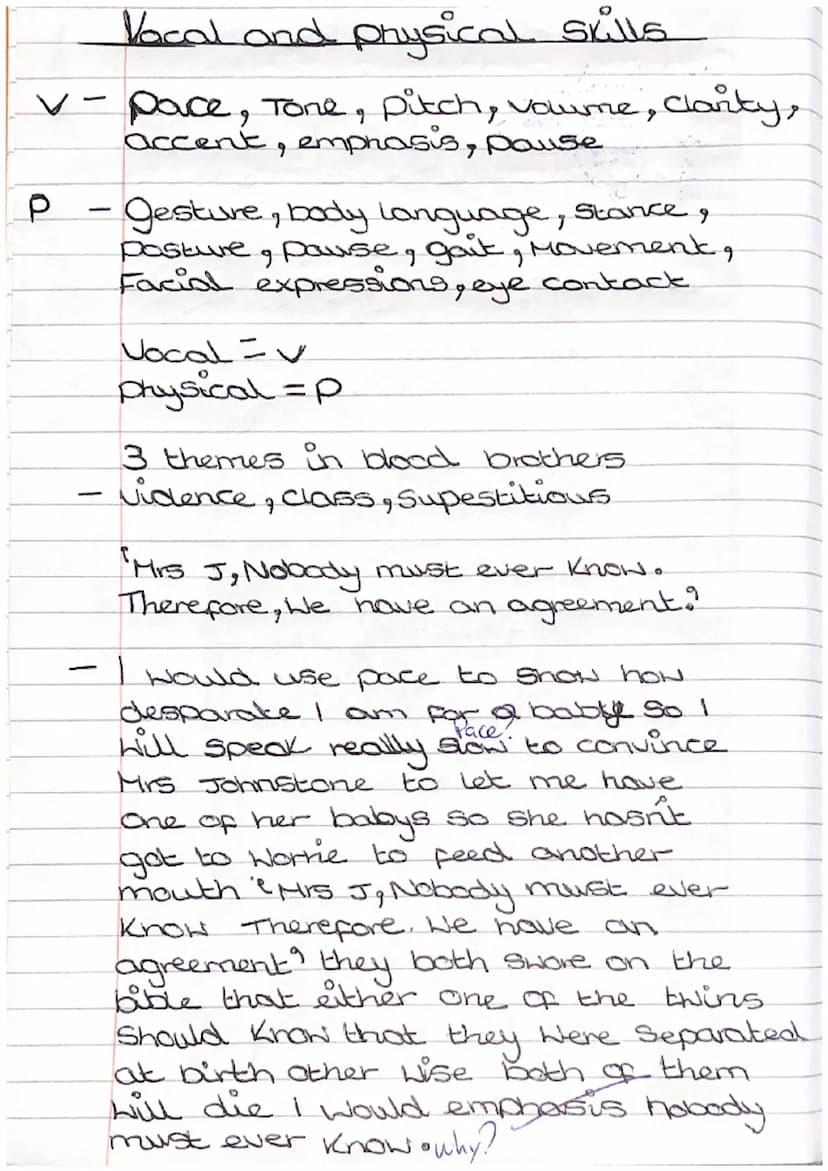 Vocal and physical skills
V - Pace, Tone, pitch, volume, clarity,
accent, emphasis, pause
P - Gesture, body language, stance,
posture, pause, gait, Movement,
Facial expressions, eye contact
Vocal = V
physical = P
3 themes in blood brothers
- Violence, class, Supestitious
"Mrs J, Nobody must ever Know.
Therefore, We have an agreement?
- I would use pace to show how
desparate I am for a baby so I
will speak really slow to convince
pace?
Mrs Johnstone to let me have
one of her babys so she hasn't
got to worrie to feed another
mouth "Mrs J, Nobody must ever
Know Therefore. We have an
agreement" they both swore on the
bible that either one of the twins
should Know that they were Separated
at birth other wise both of them
will die I would emphasis nobody
must ever know. why?